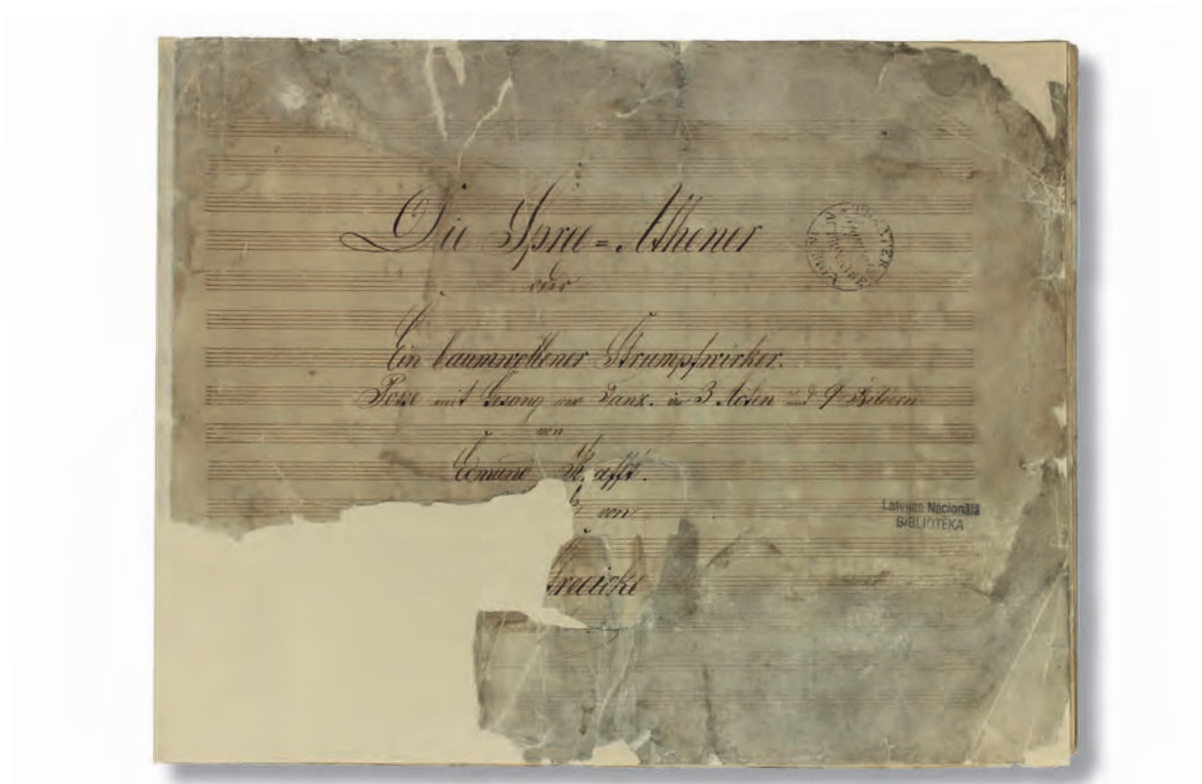 Die Spree=Athener
oder
Ein baumwollener Strumpfwirker.
Posse mit Gesang und Tanz. in 3 Acten und 9 Bildern
von
Edmund
von
THEATER
Latvijas Nacionālā
BIBLIOTĒKA